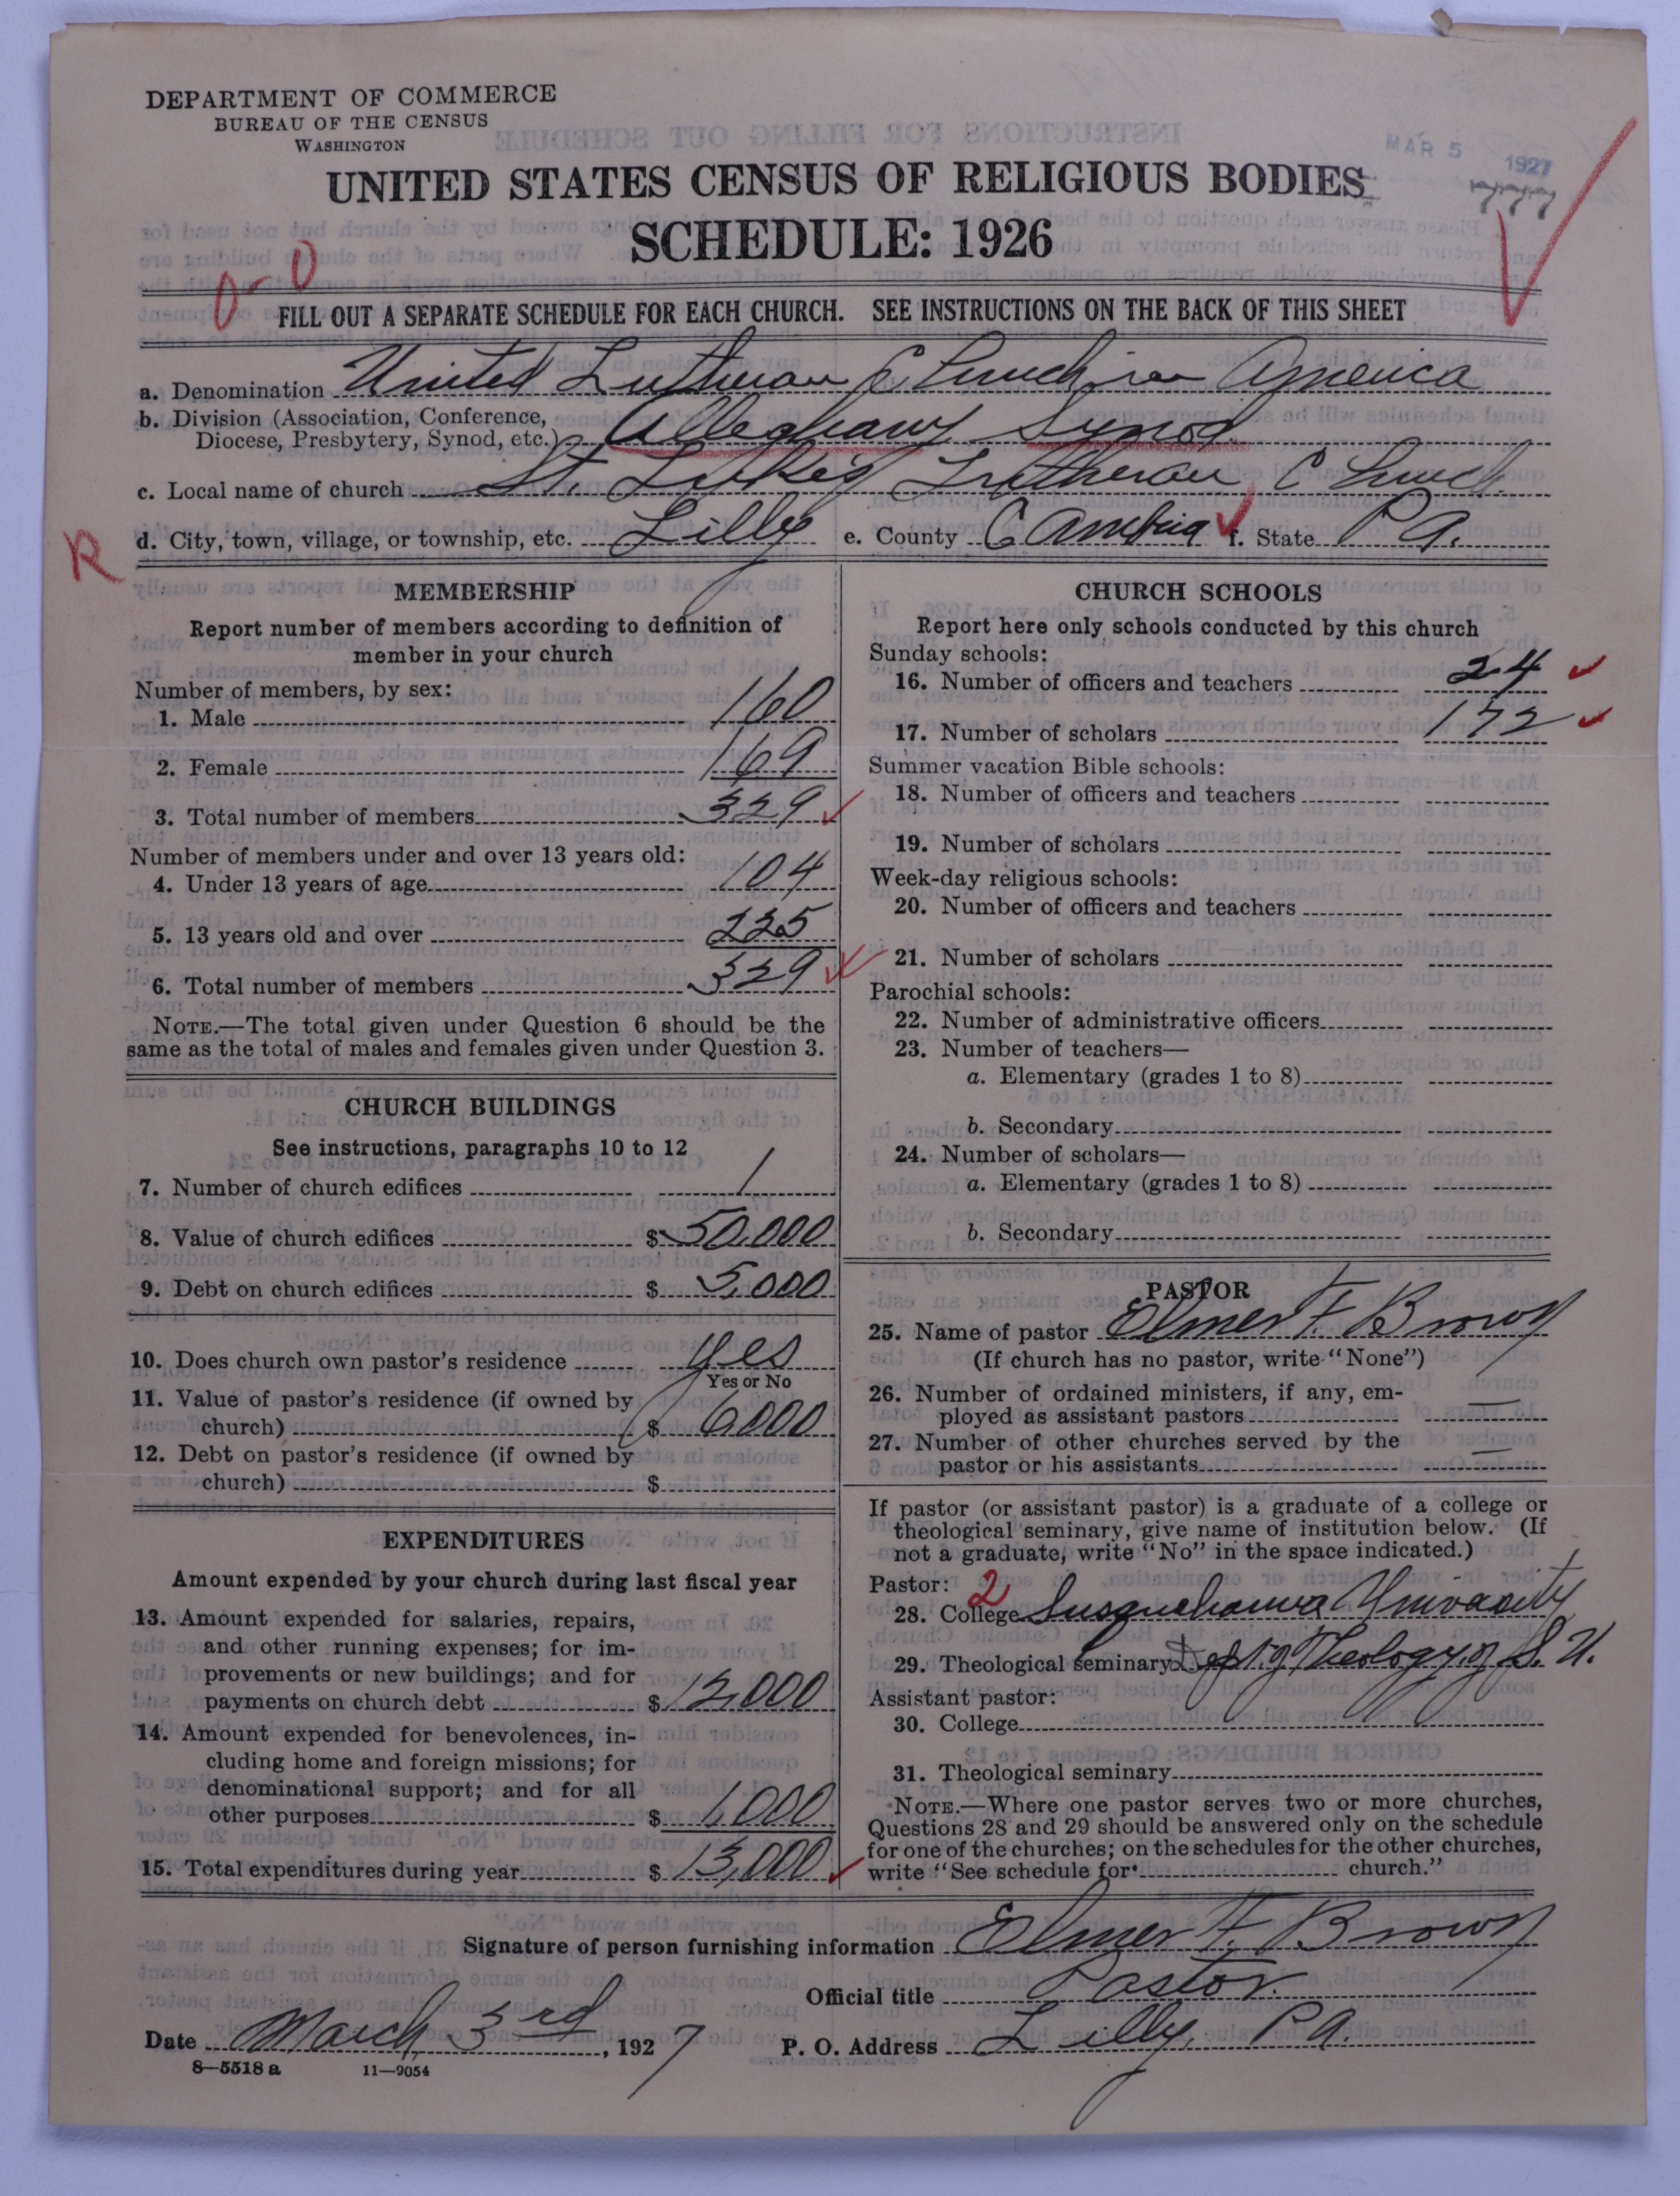 DEPARTMENT OF COMMERCE
BUREAU OF THE CENSUS
WASHINGTON
MAR 5 1927
UNITED STATES CENSUS OF RELIGIOUS BODIES
SCHEDULE: 1926
FILL OUT A SEPARATE SCHEDULE FOR EACH CHURCH. SEE INSTRUCTIONS ON THE BACK OF THIS SHEET
a. Denomination United Lutheran Church in America
b. Division (Association, Conference,
Diocese, Presbytery, Synod, etc.) Alleghany Synod
c. Local name of church St. Luke's Lutheran Church
R
d. City, town, village, or township, etc. Lilly e. County Cambria f. State Pa.
MEMBERSHIP
Report number of members according to definition of
member in your church
Number of members, by sex:
1. Male 160
2. Female 169
3. Total number of members 329
Number of members under and over 13 years old:
4. Under 13 years of age 104
5. 13 years old and over 225
6. Total number of members 329
NOTE.—The total given under Question 6 should be the
same as the total of males and females given under Question 3.
CHURCH BUILDINGS
See instructions, paragraphs 10 to 12
7. Number of church edifices 1
8. Value of church edifices $ 50,000
9. Debt on church edifices $ 5,000
10. Does church own pastor's residence Yes
Yes or No
11. Value of pastor's residence (if owned by
church) $ 6,000
12. Debt on pastor's residence (if owned by
church) $
EXPENDITURES
Amount expended by your church during last fiscal year
13. Amount expended for salaries, repairs,
and other running expenses; for im-
provements or new buildings; and for
payments on church debt $ 12,000
14. Amount expended for benevolences, in-
cluding home and foreign missions; for
denominational support; and for all
other purposes $ 1,000
15. Total expenditures during year $ 13,000
CHURCH SCHOOLS
Report here only schools conducted by this church
Sunday schools:
16. Number of officers and teachers 24
17. Number of scholars 172
Summer vacation Bible schools:
18. Number of officers and teachers
19. Number of scholars
Week-day religious schools:
20. Number of officers and teachers
21. Number of scholars
Parochial schools:
22. Number of administrative officers
23. Number of teachers—
a. Elementary (grades 1 to 8)
b. Secondary
24. Number of scholars—
a. Elementary (grades 1 to 8)
b. Secondary
PASTOR
25. Name of pastor Elmer F. Brown
(If church has no pastor, write "None")
26. Number of ordained ministers, if any, em-
ployed as assistant pastors —
27. Number of other churches served by the
pastor or his assistants —
If pastor (or assistant pastor) is a graduate of a college or
theological seminary, give name of institution below. (If
not a graduate, write "No" in the space indicated.)
Pastor: 2
28. College Susquehanna University
29. Theological seminary Dept. of Theology of S. U.
Assistant pastor:
30. College
31. Theological seminary
NOTE.—Where one pastor serves two or more churches,
Questions 28 and 29 should be answered only on the schedule
for one of the churches; on the schedules for the other churches,
write "See schedule for church."
Signature of person furnishing information Elmer F. Brown
Official title Pastor.
Date March 3rd, 1927 P. O. Address Lilly, Pa.
8—5518 a 11—9054